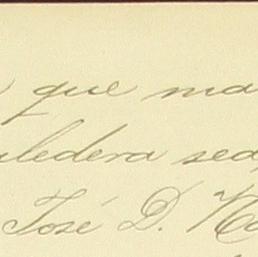 que ma
uledera sea
José D. Na